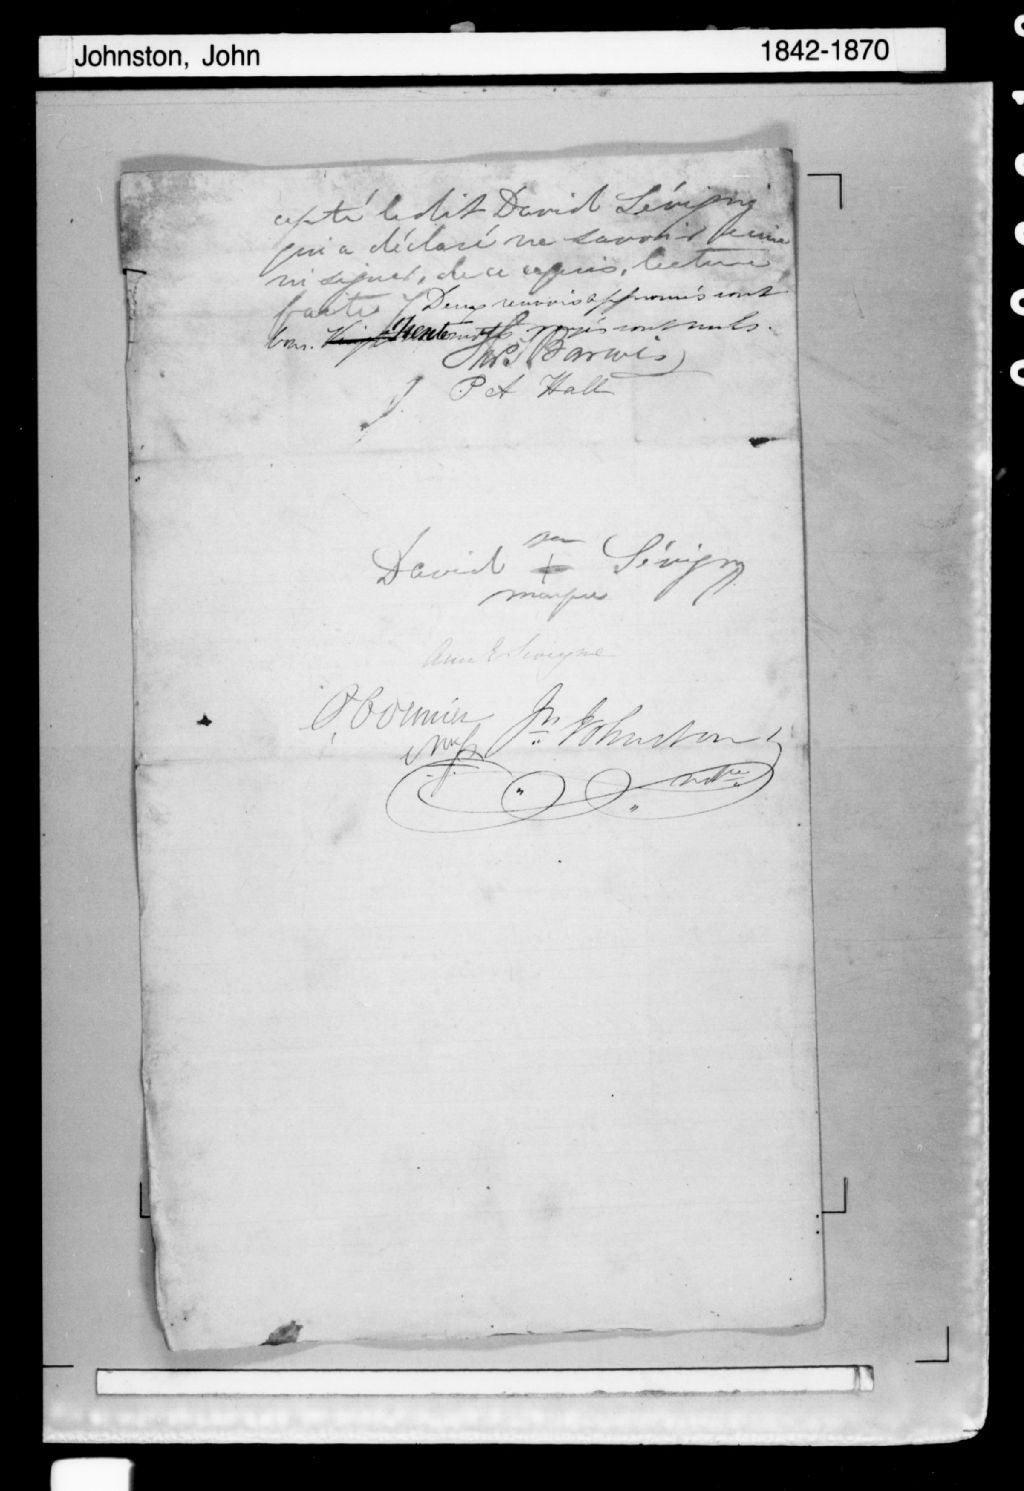 Johnston, John 1842-1870
cepté le dit David Sévigny
qui a déclaré ne savoir écrire
ni signer, de ce requis, lecture
faite Deux renvois approuvés sont
bons. Trente mots rayés sont nuls.
Thos Barwis
P A Hall
David sa + Sévigny
marque
Ann E Sévigne
P Cormier Jn Johnston
N.P.